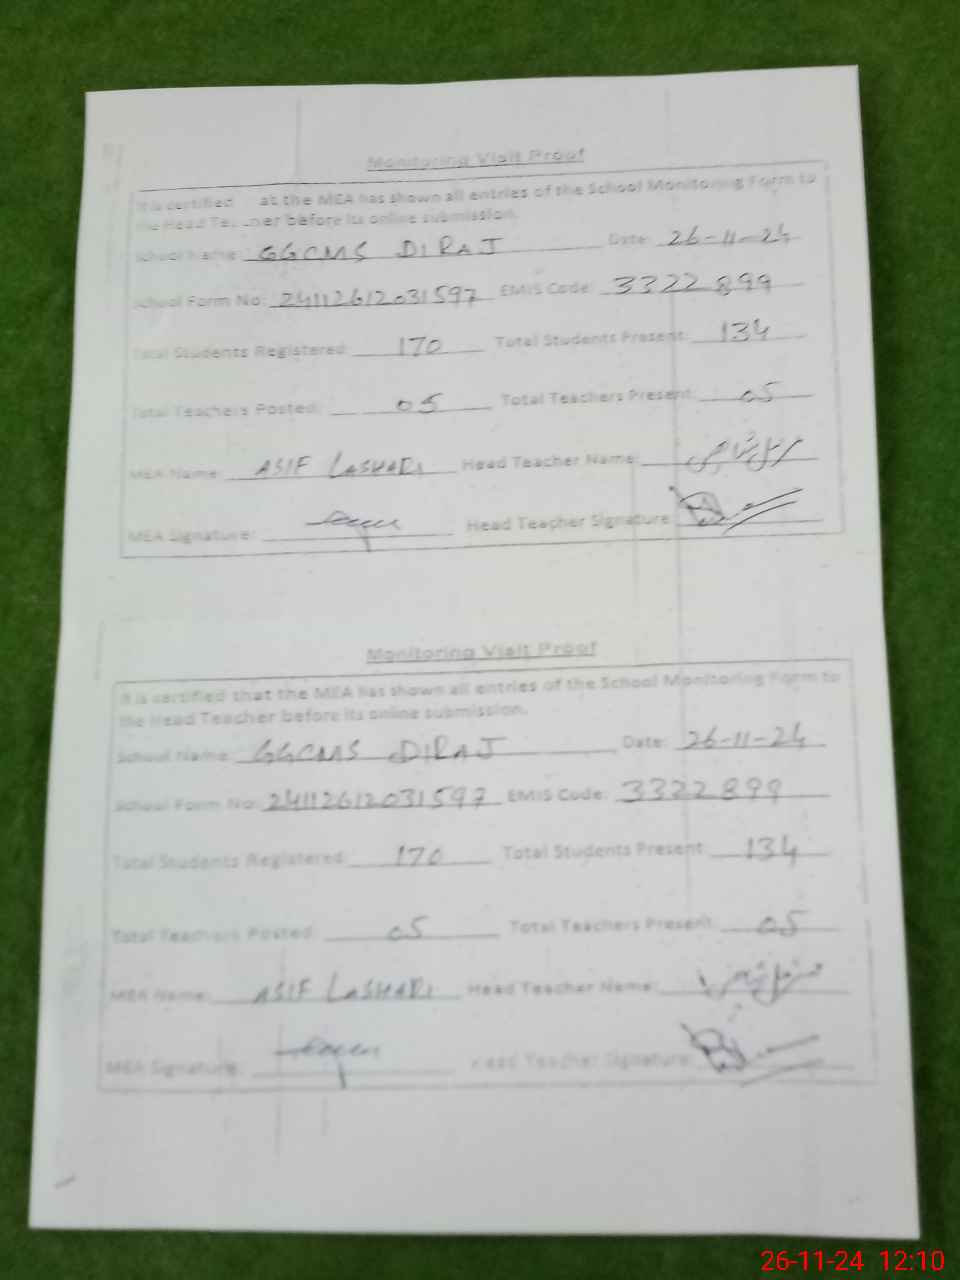 Monitoring Visit Proof
It is certified at the MEA has shown all entries of the School Monitoring Form to
the Head Te ner before its online submission.
School Name: GGCMS DIRAJ Date: 26-11-24
School Form No: 24112612031597 EMIS Code: 3322899
Total Students Registered: 170 Total Students Present: 134
Total Teachers Posted: 05 Total Teachers Present: 05
MEA Name: ASIF LASHARI Head Teacher Name:
MEA Signature: Head Teacher Signature:
Monitoring Visit Proof
It is certified that the MEA has shown all entries of the School Monitoring Form to
the Head Teacher before its online submission.
School Name: GGCMS DIRAJ Date: 26-11-24
School Form No: 24112612031597 EMIS Code: 3322899
Total Students Registered: 170 Total Students Present: 134
Total Teachers Posted: 05 Total Teachers Present: 05
MEA Name: ASIF LASHARI Head Teacher Name:
MEA Signature: Head Teacher Signature:
26-11-24 12:10